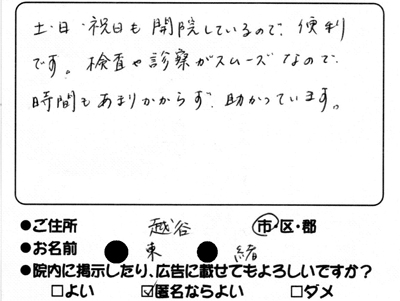 土・日・祝日も開院しているので、便利
です。検査や診察がスムーズなので、
時間もあまりかからず、助かっています。
●ご住所 越谷 市・区・郡
●お名前 ●東●緒
●院内に掲示したり、広告に載せてもよろしいですか？
□よい ☑匿名ならよい □ダメ